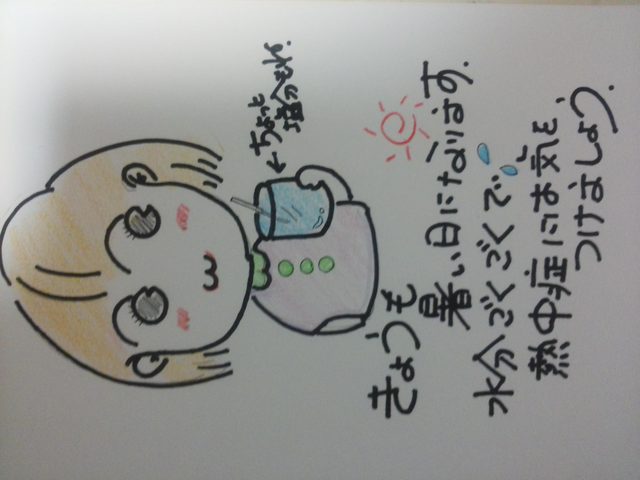 ←ちょっと
塩分もね.
きょうも
暑い日になります.
水分ごくごくで
熱中症にお気を
つけましょう.